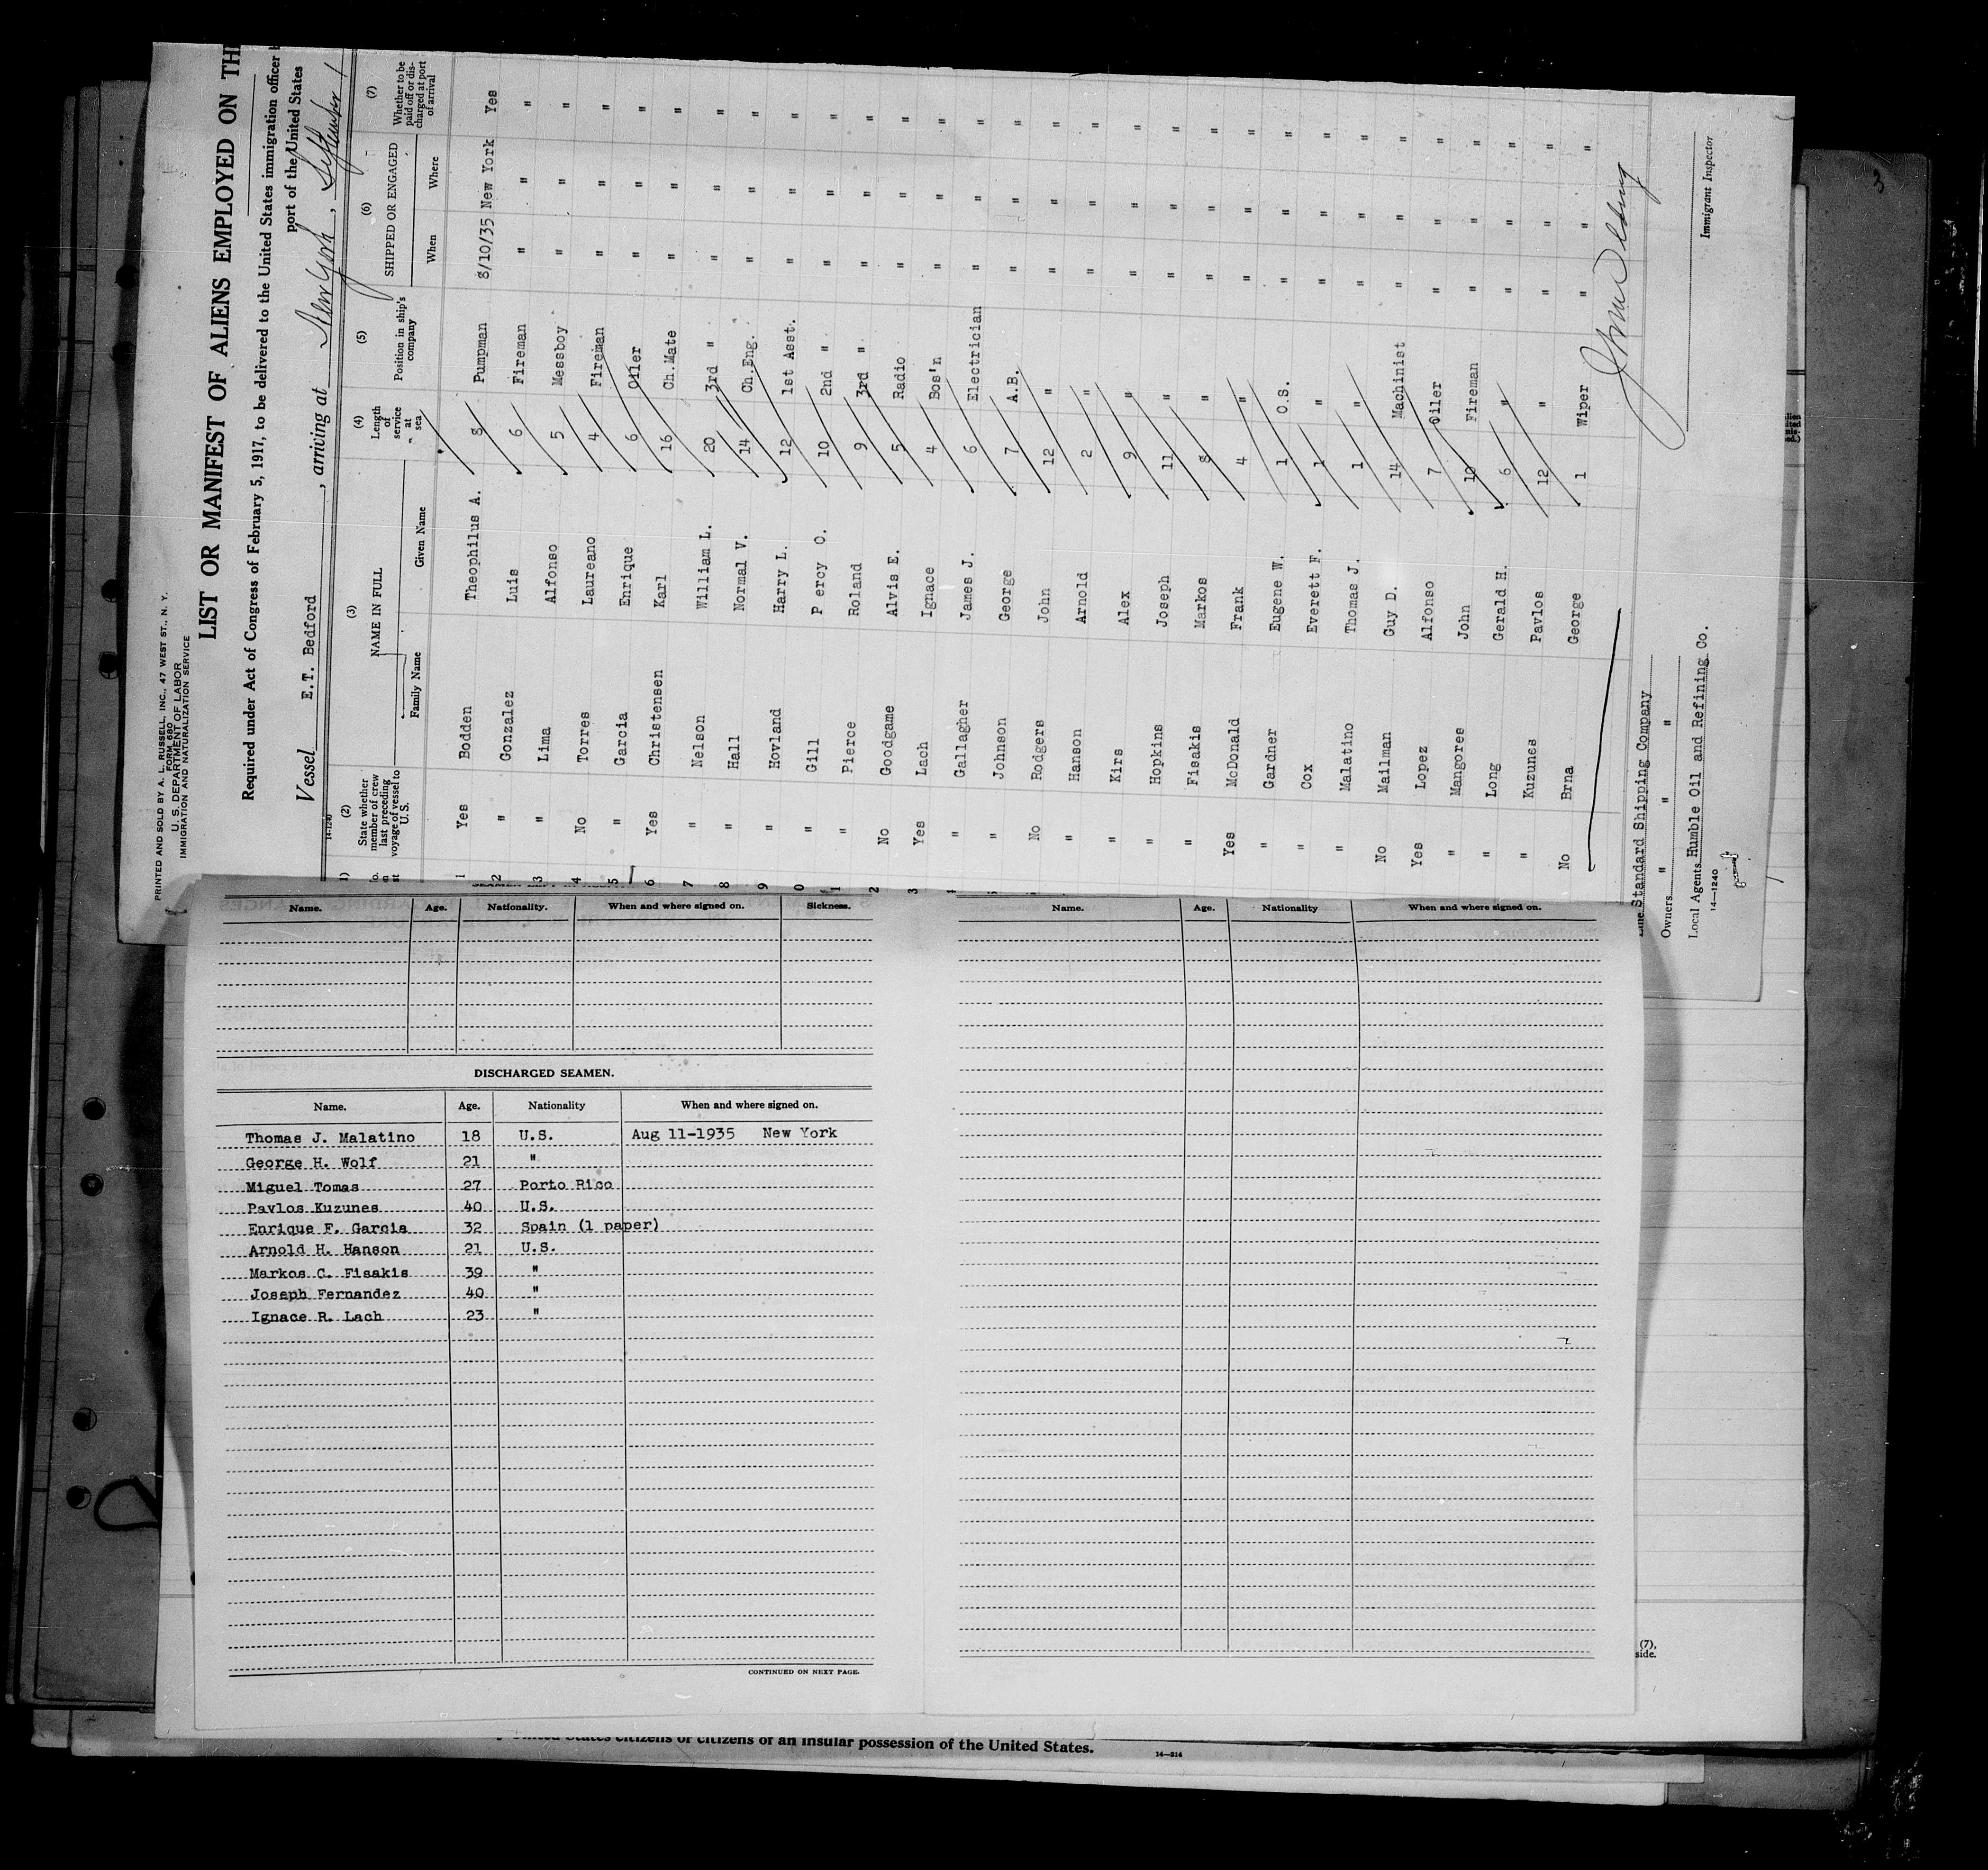 PRINTED AND SOLD BY A. L. RUSSELL, INC., 47 WEST ST., N. Y.
FORM 680
U. S. DEPARTMENT OF LABOR
IMMIGRATION AND NATURALIZATION SERVICE
LIST OR MANIFEST OF ALIENS EMPLOYED ON TH
Required under Act of Congress of February 5, 1917, to be delivered to the United States immigration officer
port of the United States
Vessel E.T. Bedford , arriving at New York , September 1
14-1240
(2) (3) (4) (5) (6) (7)
State whether member of crew last preceding voyage of vessel to U.S. NAME IN FULL Length of service at sea Position in ship's company SHIPPED OR ENGAGED Whether to be paid off or discharged at port of arrival
Family Name Given Name When Where
1 Yes Bodden Theophilus A. 8 Pumpman 8/10/35 New York Yes
2 " Gonzalez Luis 6 Fireman " " "
3 " Lima Alfonso 5 Messboy " " "
4 No Torres Laureano 4 Fireman " " "
5 " Garcia Enrique 6 Oiler " " "
6 Yes Christensen Karl 16 Ch.Mate " " "
7 " Nelson William L. 20 3rd " " " "
8 " Hall Normal V. 14 Ch.Eng. " " "
9 " Hovland Harry L. 12 1st Asst. " " "
0 " Gill P ercy O. 10 2nd " " " "
1 " Pierce Roland 9 3rd " " " "
2 No Goodgame Alvis E. 5 Radio " " "
3 Yes Lach Ignace 4 Bos'n " " "
" Gallagher James J. 6 Electrician " " "
" Johnson George 7 A.B. " " "
No Rodgers John 12 " " " "
" Hanson Arnold 2 " " " "
" Kirs Alex 9 " " " "
" Hopkins Joseph 11 " " " "
" Fisakis Markos 8 " " " "
Yes McDonald Frank 4 " " " "
" Gardner Eugene W. 1 O.S. " " "
" Cox Everett F. 1 " " " "
" Malatino Thomas J. 1 " " " "
No Mailman Guy D. 14 Machinist " " "
Yes Lopez Alfonso 7 Oiler " " "
" Mangores John 10 Fireman " " "
" Long Gerald H. 6 " " " "
" Kuzunes Pavlos 12 " " " "
No Brna George 1 Wiper " " "
Immigrant Inspector
Line Standard Shipping Company
Owners " " "
Local Agents Humble Oil and Refining Co.
14-1240
Name. Age. Nationality. When and where signed on. Sickness.
DISCHARGED SEAMEN.
Name. Age. Nationality When and where signed on.
Thomas J. Malatino 18 U.S. Aug 11-1935 New York
George H. Wolf 21 "
Miguel Tomas 27 Porto Rico
Pavlos Kuzunes 40 U.S.
Enrique F. Garcia 32 Spain (1 paper)
Arnold H. Hanson 21 U.S.
Markos C. Fisakis 39 "
Joseph Fernandez 40 "
Ignace R. Lach 23 "
CONTINUED ON NEXT PAGE.
Name. Age. Nationality When and where signed on.
(7),
side.
United States citizens or citizens of an insular possession of the United States.
14-214
3